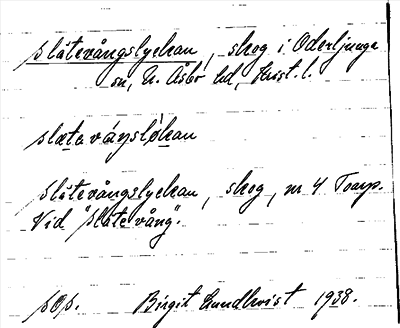 Slätevångslyckan, skog i Oderljunga
sn, N. Åsbo hd, Krist. l.
slæta váŋsløkan
Slätevångslyckan, skog, nr 4 Toarp.
Vid "Släte vång".
pop. Birgit Lundkvist 1938.